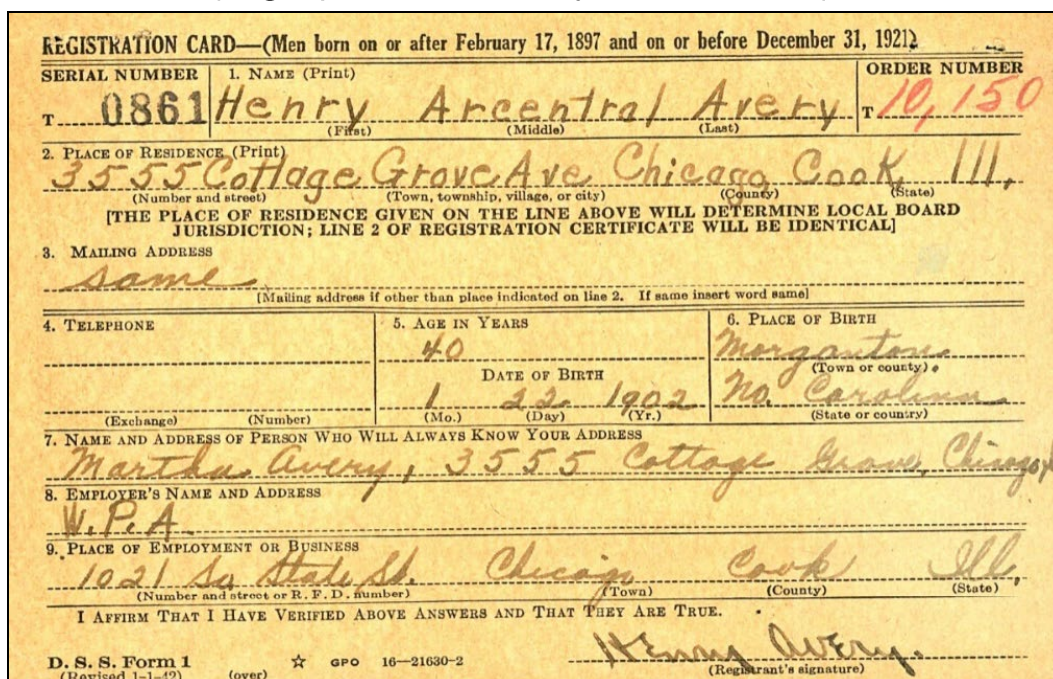 REGISTRATION CARD—(Men born on or after February 17, 1897 and on or before December 31, 1921)
SERIAL NUMBER 1. NAME (Print) ORDER NUMBER
T 0861 Henry Arcentral Avery T 10,150
(First) (Middle) (Last)
2. PLACE OF RESIDENCE (Print)
3555 Cottage Grove Ave Chicago Cook Ill,
(Number and street) (Town, township, village, or city) (County) (State)
[THE PLACE OF RESIDENCE GIVEN ON THE LINE ABOVE WILL DETERMINE LOCAL BOARD
JURISDICTION; LINE 2 OF REGISTRATION CERTIFICATE WILL BE IDENTICAL]
3. MAILING ADDRESS
same
[Mailing address if other than place indicated on line 2. If same insert word same]
4. TELEPHONE 5. AGE IN YEARS 6. PLACE OF BIRTH
40 Morganton
(Town or county)
DATE OF BIRTH
1 22 1902 No. Carolina
(Exchange) (Number) (Mo.) (Day) (Yr.) (State or country)
7. NAME AND ADDRESS OF PERSON WHO WILL ALWAYS KNOW YOUR ADDRESS
Martha Avery, 3555 Cottage Grove, Chicago
8. EMPLOYER'S NAME AND ADDRESS
W.P.A.
9. PLACE OF EMPLOYMENT OR BUSINESS
1021 So State St. Chicago Cook Ill.
(Number and street or R. F. D. number) (Town) (County) (State)
I AFFIRM THAT I HAVE VERIFIED ABOVE ANSWERS AND THAT THEY ARE TRUE.
Henry Avery.
D. S. S. Form 1 ☆ GPO 16—21630-2 (Registrant's signature)
(Revised 1-1-42) (over)